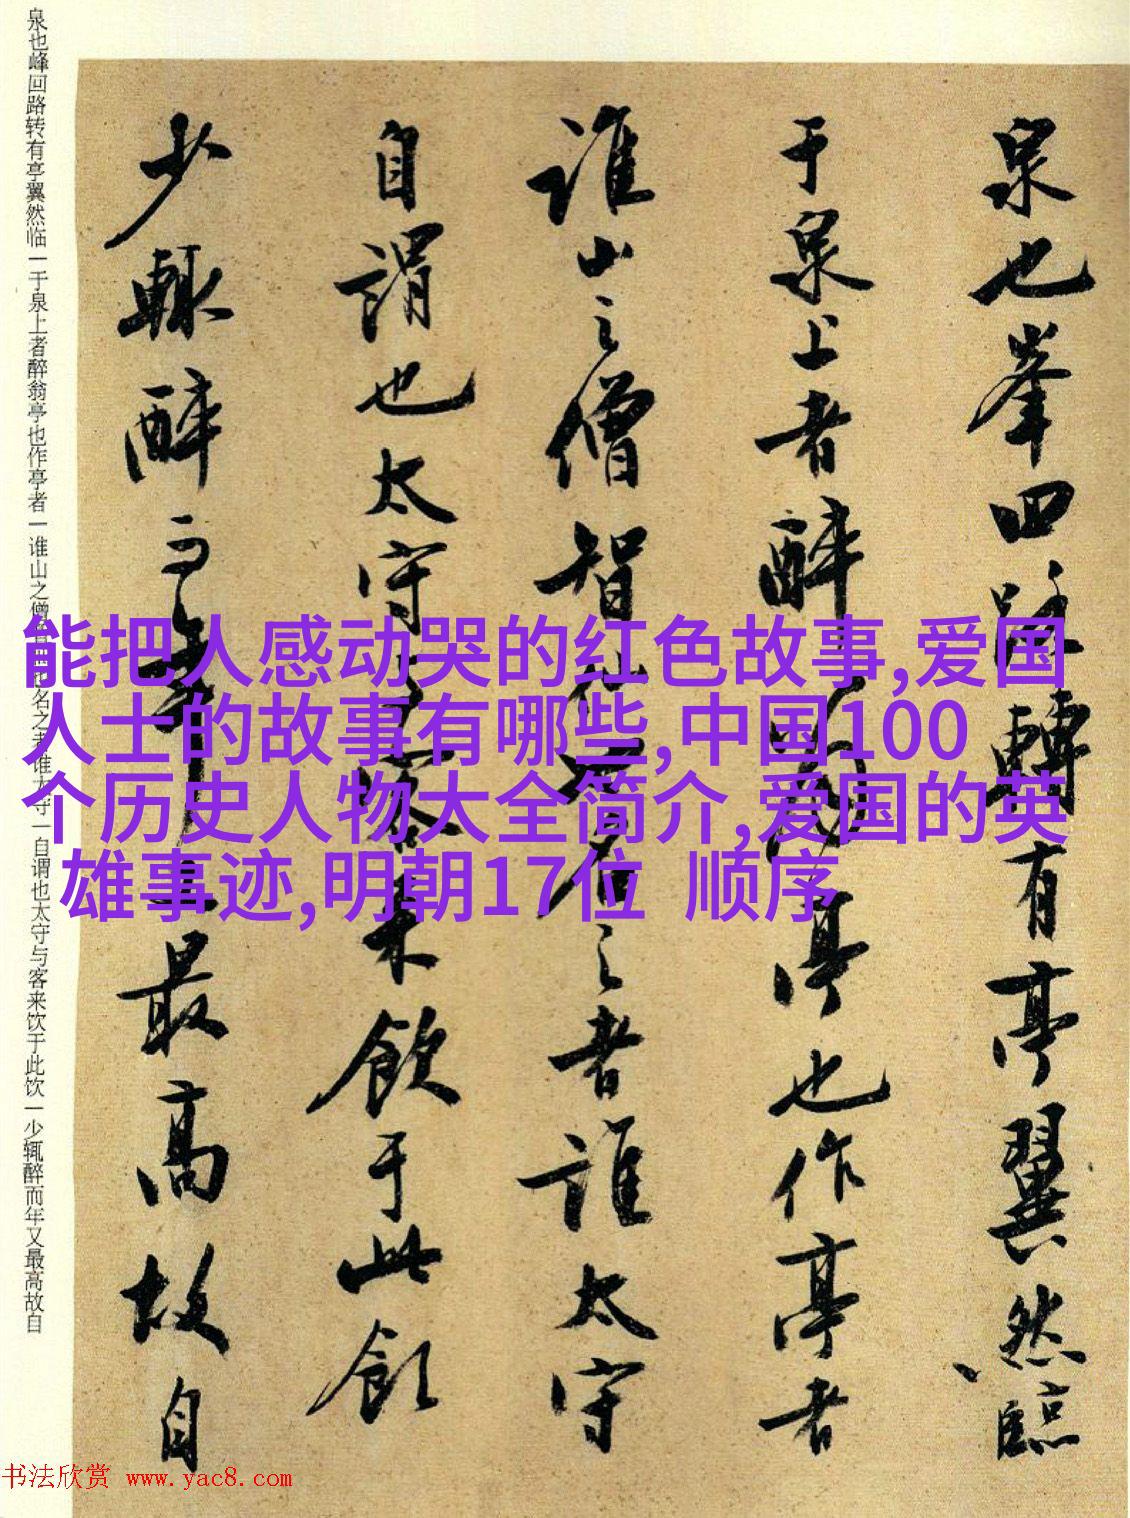 泉也峰回路转有亭翼然临一于泉上者醉翁亭也作亭者一谁山之僧
名之者谁太守一自谓也太守与客来饮于此饮一少辄醉而年又最高故自
泉也峯回路轉有亭翼然臨
于泉上者醉翁亭也作亭者
誰山之僧智仙
名之者誰太守
自謂也太守与客来飲于此飲
少輒醉而年又最高故自
能把人感动哭的红色故事,爱国
人士的故事有哪些,中国100
个历史人物大全简介,爱国的英
雄事迹,明朝17位 顺序
书法欣赏 www.yac8.com